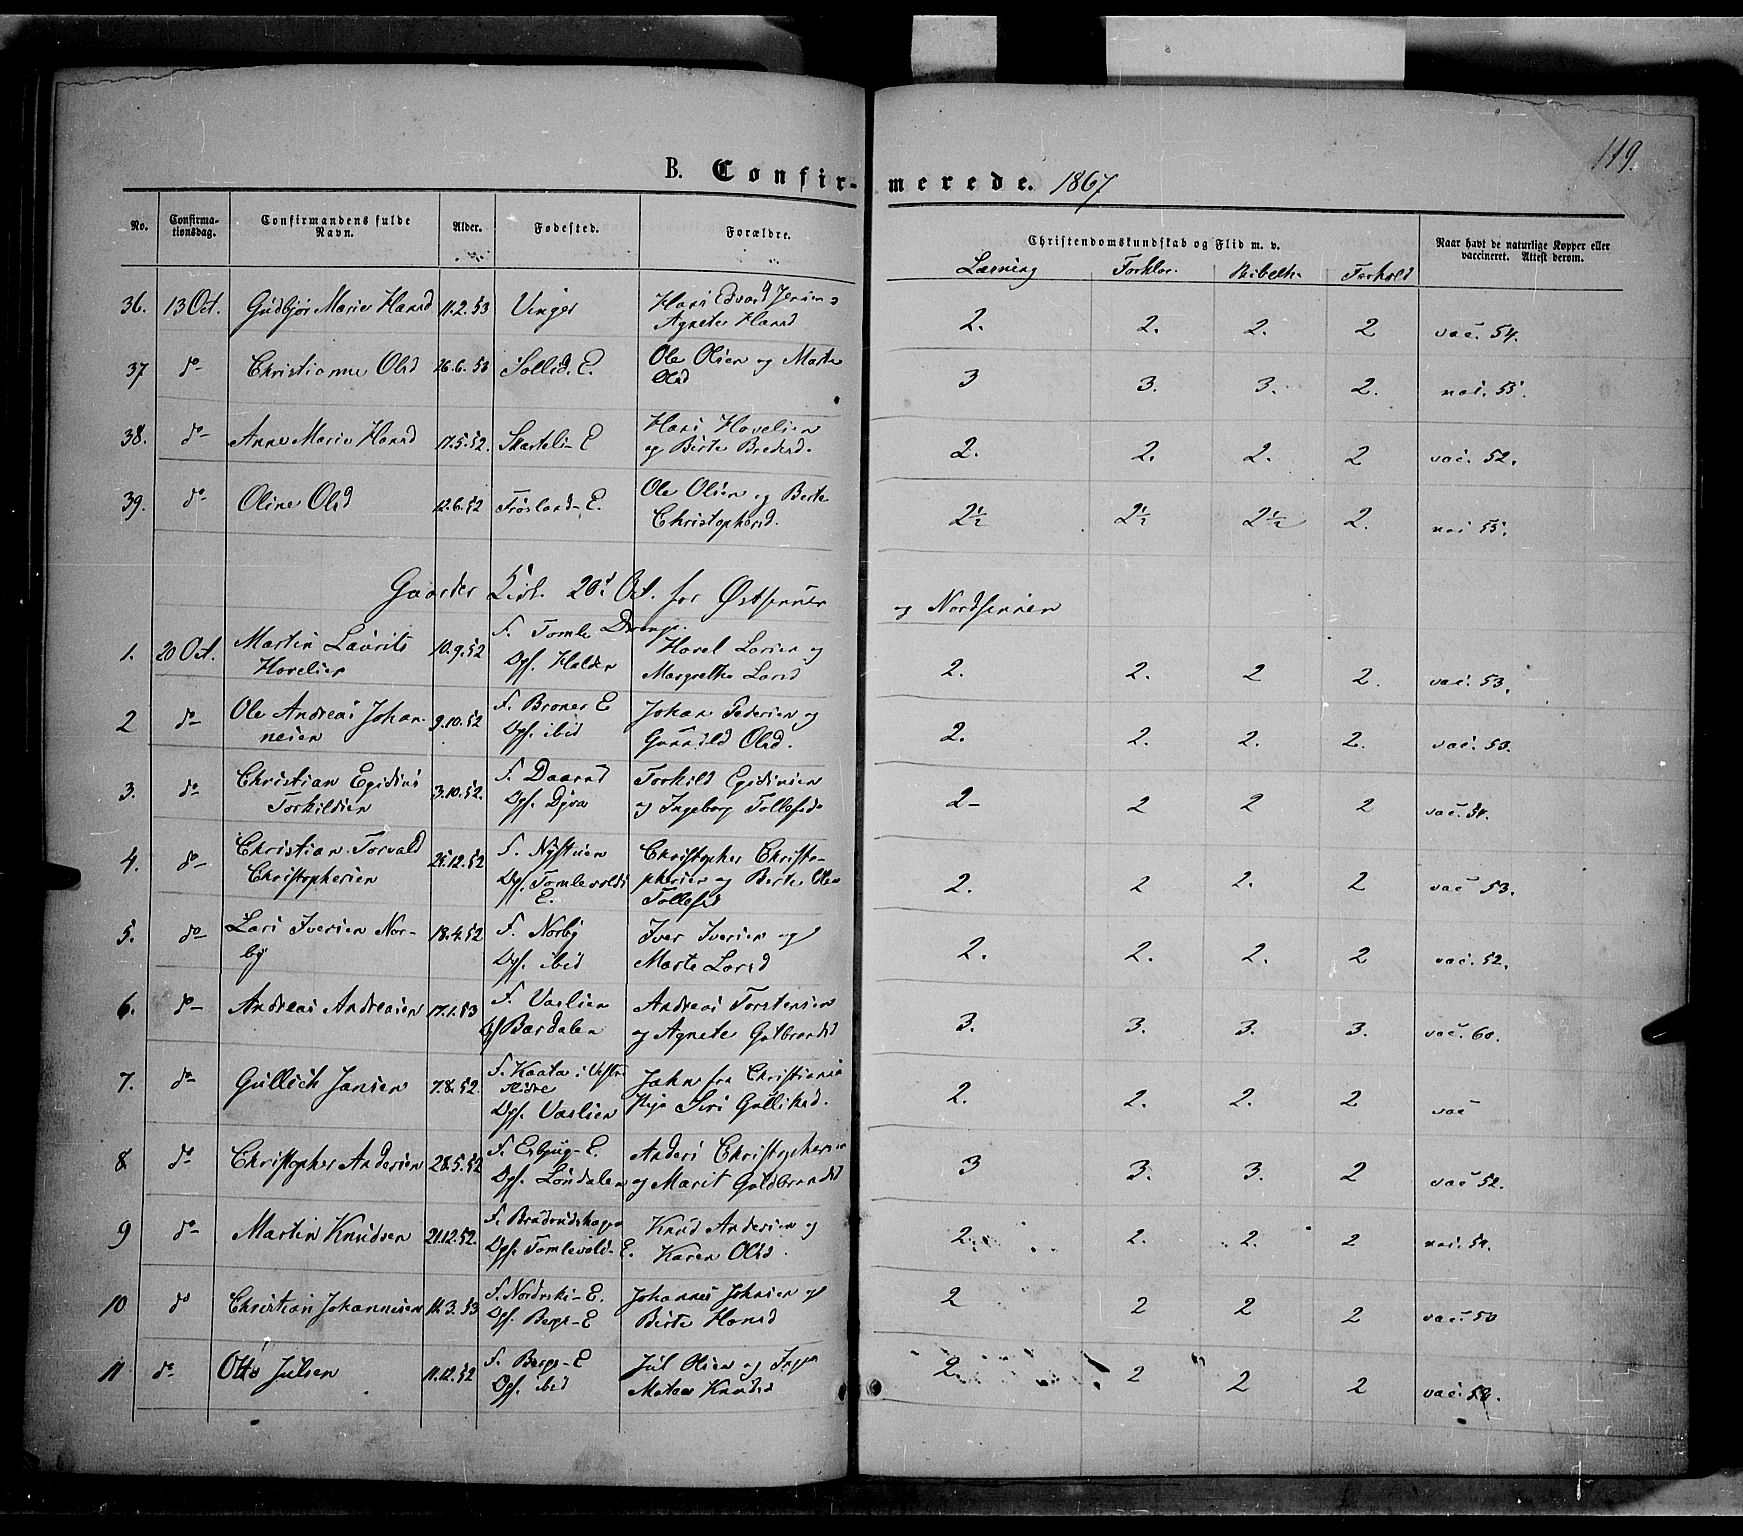 119.
B. Confir- merede. 1867
No. Confirma-tionsdag. Confirmandens fulde Navn. Alder. Fødested. Forældre. Christendomskundskab og Flid m. v. Naar havt de naturlige Kopper eller vaccineret. Attest derom.
Læsning Forklar. Bibelh. Forhold
36. 13 Oct. Gudbjør Marie Hansd 11.2.53 Vinger Hans Edvard Jensen &
Agnete Hansd 2. 2. 2. 2 vac. 54.
37 do Christianne Olsd 26.6.53 Sollid. E. Ole Olsen og Marte
Olsd 3 3. 3. 2. vac. 55.
38. do Anne Marie Hansd 17.5.52. E Hans Hovelsen
og Berte Bredesd. 2. 2. 2. 2 vac. 52.
39. do Oline Olsd 12.6.52 Frøsland E. Ole Olsen og Berte
Christophersd. 2½ 2½ 2½ 2. vac 55.
20d Oct. for Østsinnen og Nordsinnen
1. 20 Oct. Martin Laurits
Hovelsen 10.9.52 F. Tomle
Opf. Halden Hovel Larsen og
Margrethe Larsd 2. 2. 2 2. vac. 53.
2 do Ole Andreas Johan-
nesen 9.10.52 F. Broner E
Opf. ibid Johan Pedersen og
Gunnild Olsd. 2. 2. 2. 2. vac. 53.
3. do Christian Egidius
Torkildsen 3.10.52. F.
Opf. Torkild Egidiusen
og Ingeborg Tollefsd. 2- 2 2 2 vac. 54.
4. do Christian Torvald
Christophersen 25.12.52 F. Nystuen
Opf. Tomlevolds
E. Christopher Christo-
phersen og Berte Olea
Tollefsd 2. 2 2. 2 vac 53.
5. do Lars Iversen Nor-
by 18.4.52 F. Norby
Opf. ibid Iver Iversen og
Marte Larsd 2. 2. 2. 2 vac. 52.
6. do Andreas Andreasen 17.1.53 F. Vaslien
Opf Bærdalen Andreas Torstensen
og Agnete Gulbrandsd 3. 3. 3. 3. vac. 60.
7. do Gullich Jansen 7.8.52. F. Kaata i Vestre
Slidre
Opf. Vaslien Jahn fra Christiania
Siri Gulliksd. 2. 2. 2. 2 vac
8 do Christopher Andersen 28.5.52 F. Esbjug-E.
Opf. Løndalen Anders Christophersen
og Marit Guldbrandsd 3 3. 3. 2 vac 52.
9 do Martin Knudsen 21.12.52. F.
Opf. Tomlevold-E. Knud Andersen og
Karen Olsd 2. 2. 2. 2 vac. 54.
10 do Christian Johannesen 14.3.53 F. E.
Opf. Berge-E Johannes Johnsen og
Berte Hansd 2 2 2 2 vac. 53
11 do Otto Julsen 11.12.52 F. Berge-E
Opf. ibid Jul Olsen og Inger
Matea Knudsd 2. 2 2 2 vac. 53.